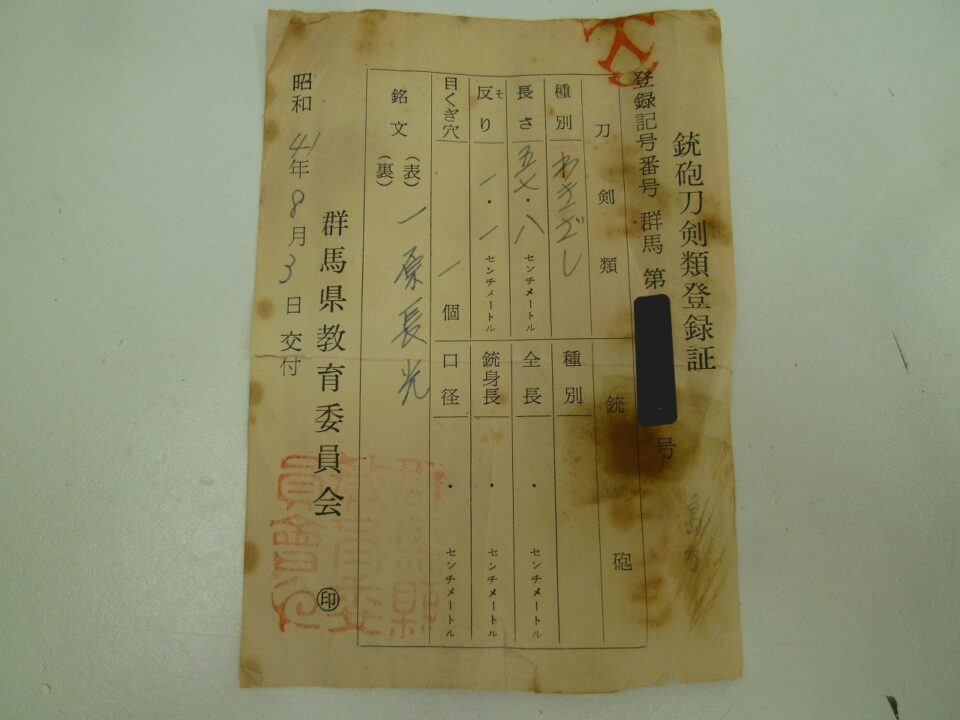 銃砲刀剣類登録証
登録記号番号 群馬 第 号
刀剣類
銃砲
種別 わきざし
種別
長さ 五七・八 センチメートル
全長 ・ センチメートル
反り ソ 一・一 センチメートル
銃身長 ・ センチメートル
目くぎ穴 一 個
口径 ・ センチメートル
銘文 (表) 一原長光
(裏)
群馬県教育委員会 ㊞
昭和 41年 8月 3日 交付
群馬県
教育委
員會印